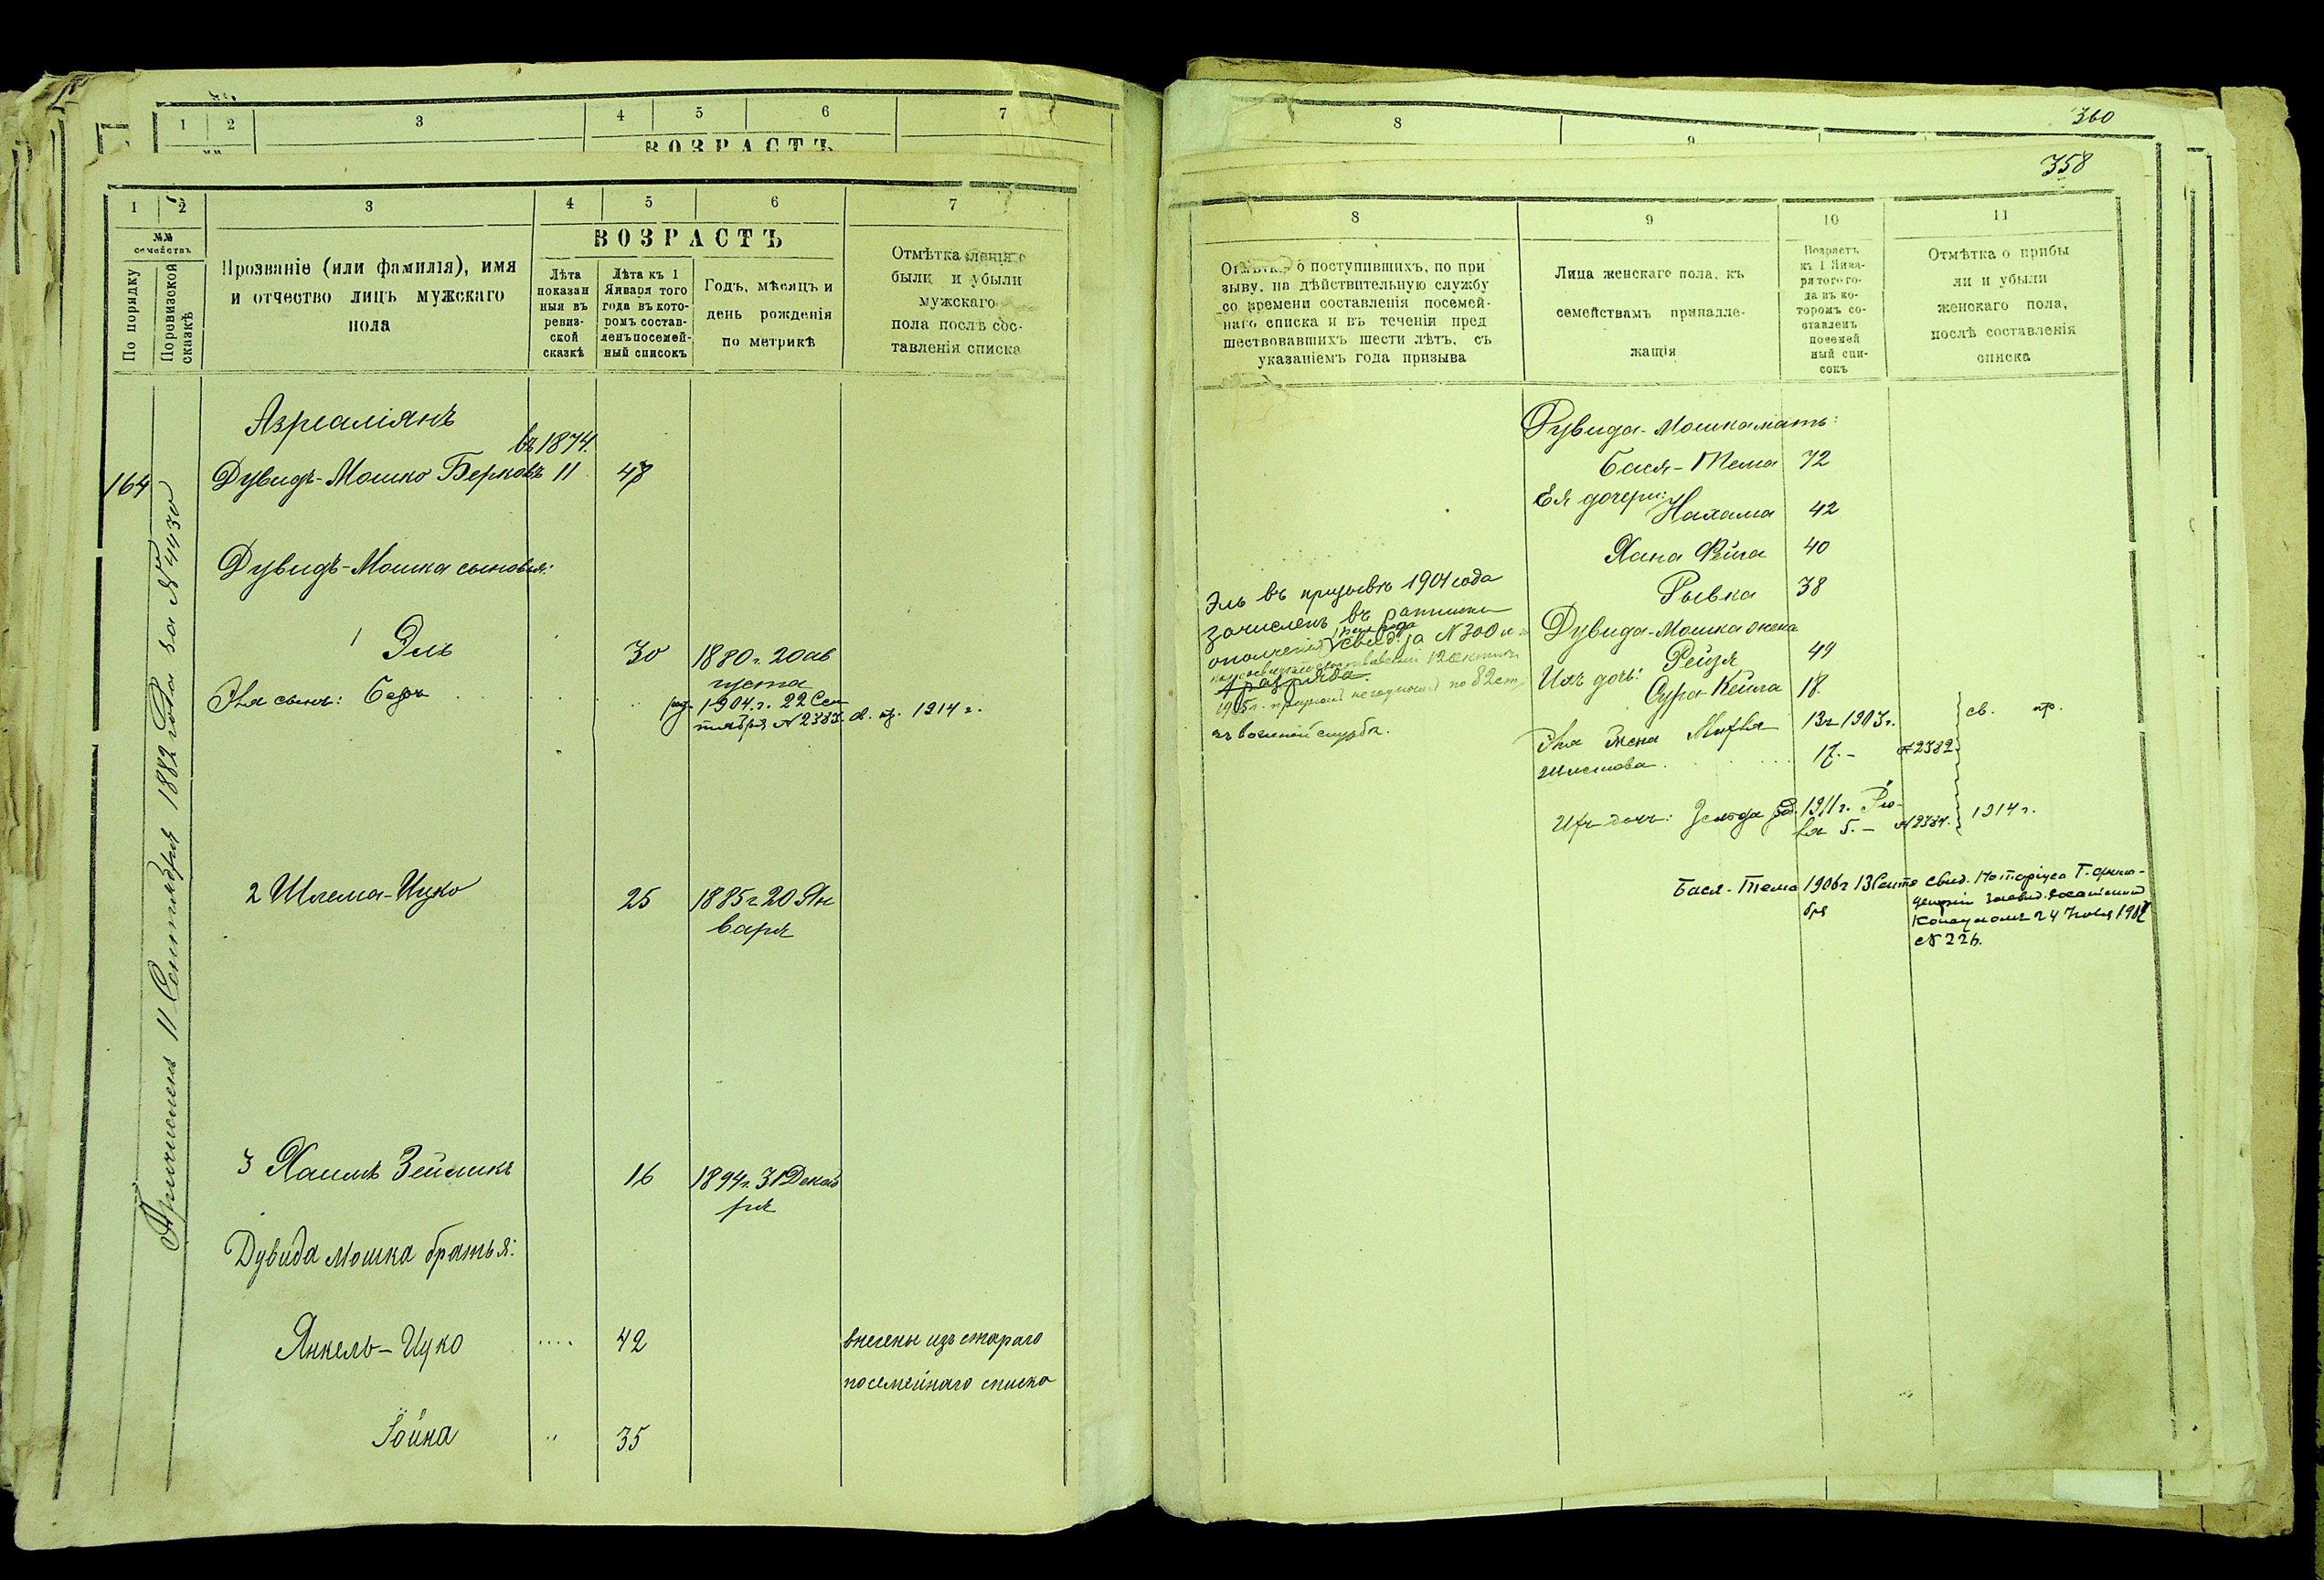 1 2 3 4 5 6 7
ВОЗРАСТЪ
1 2 3 4 5 6 7
№№ семействъ
По порядку
По ревизской сказкѣ
Прозваніе (или фамилія), имя
и отчество лицъ мужскаго
пола
ВОЗРАСТЪ
Лѣта
показан
ныя въ
ревиз-
ской
сказкѣ
Лѣта къ 1
Января того
года въ кото-
ромъ состав-
ленъ посемей-
ный списокъ
Годъ, мѣсяцъ и
день рожденія
по метрикѣ
Отмѣтка
были и убыли
мужскаго
пола послѣ сос-
тавленія списка
Азреаліянъ
въ 1874.
164 Дувидъ-Мошко Берковъ 11 48
Причисленъ 11 Сентября 1882 года за № 4430
Дувидъ-Мошка сыновья:
1 Эль 30 1880 г. 20 ав
густа
Эля сынъ: Беръ род. 1904 г. 22 Сен
тября № 2383 1914 г.
2 Шлема-Ицко 25 1885 г. 20 Ян
варя
3 Хаимъ Зейликъ 16 1894 г. 31 Декаб
ря
Дувида Мошка братья:
Янкель-Ицко .... 42 внесены изъ стараго
посемейнаго списка
Іойна " 35
8 9 360
358
8 9 10 11
о поступившихъ, по при
зыву, на дѣйствительную службу
со времени составленія посемей-
наго списка и въ теченіи пред
шествовавшихъ шести лѣтъ, съ
указаніемъ года призыва
Лица женскаго пола, къ
семействамъ принадле-
жащія
Возрастъ
къ 1 Янва-
ря того го-
да въ ко-
торомъ со-
ставленъ
посемей
ный спи-
сокъ
Отмѣтка о прибы
ли и убыли
женскаго пола,
послѣ составленія
списка
Дувида-Мошка мать:
Бася-Тема 72
Ея дочери:
Нахама 42
Хана Фейга 40
Рывка 38
Эль въ призывъ 1904 года
зачисленъ въ ратники
ополченія свид. за № 300
1 разряда
1905 г. негодным по 82 ст.
къ военной службѣ.
Дувида-Мошка жена
Рейзя 49
Ихъ дочь:
Сура-Кейла 18.
Эля жена 1903 г. св. пр.
17.– № 2382
Ихъ дочь: Зелда род. 1911 г.
5.– № 2384. 1914 г.
Бася-Тема 1906 г. 13 Сентя свид. Нотаріуса
бря
Консуломъ 24
№ 226.